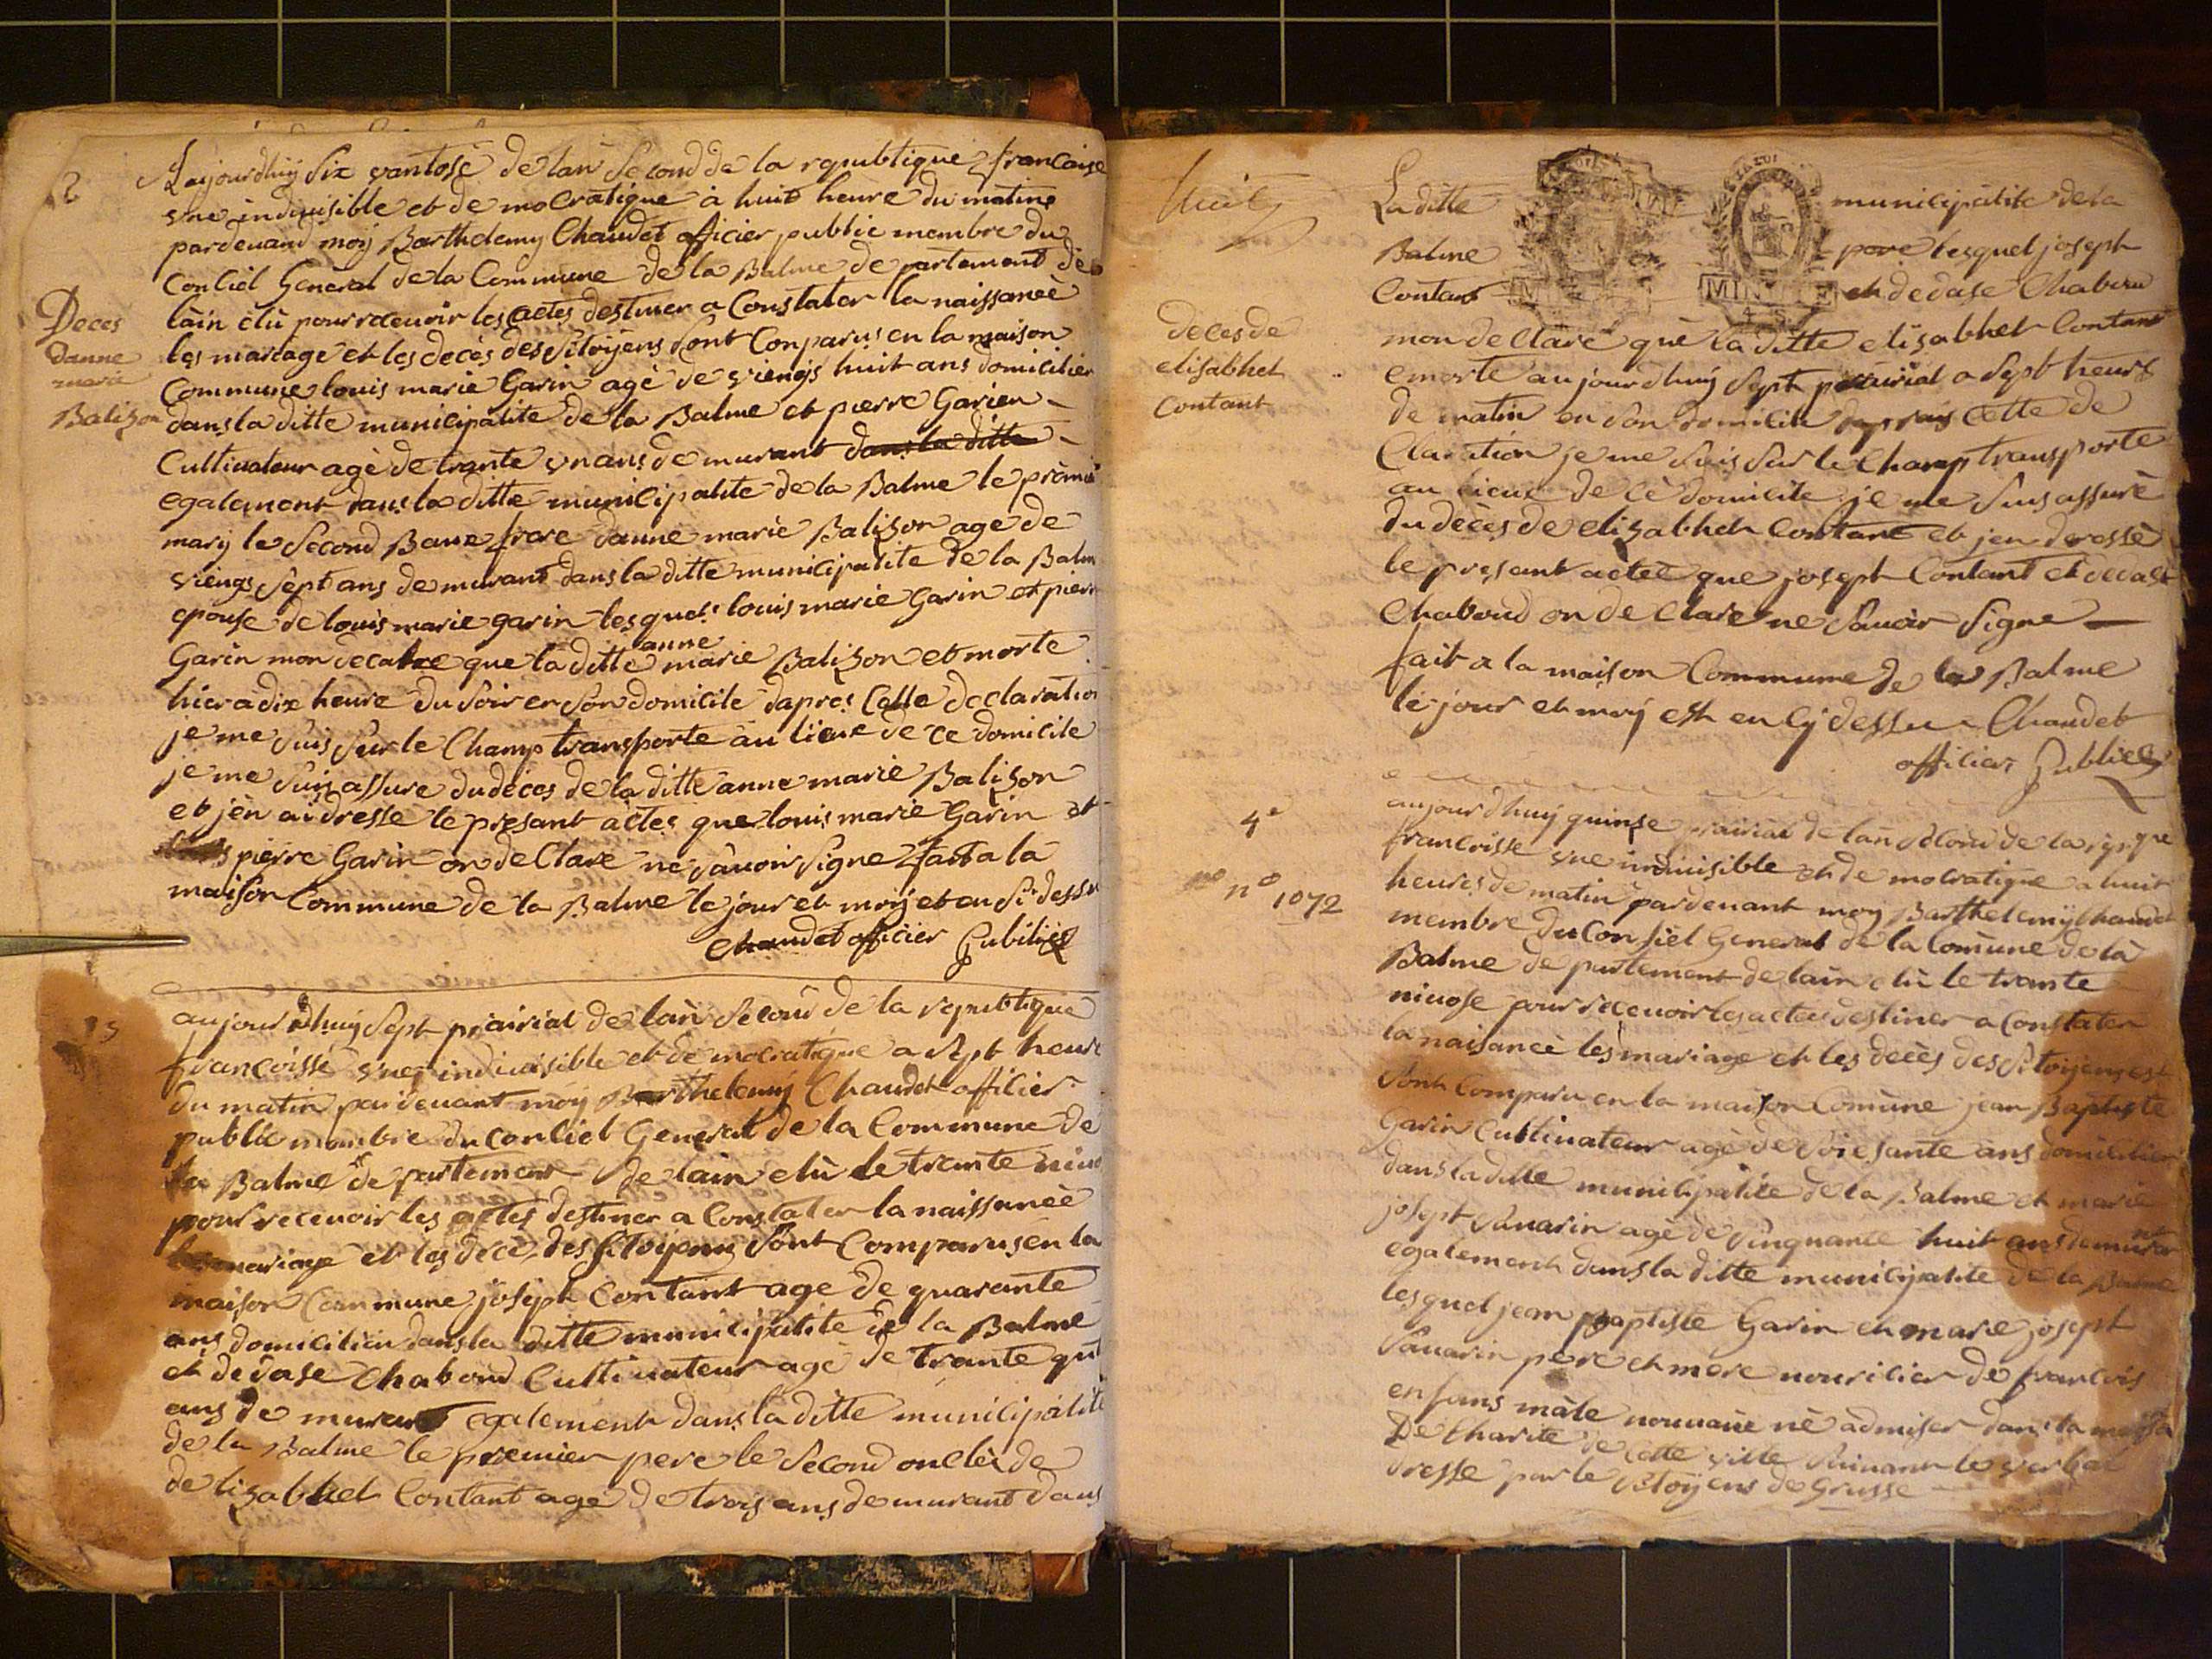 2
Aujourdhuy Six vantose de lan Second de la republique francaise
une indiuisible et de mocratique à huit heure du matin
pardeuand moy Barthelemy Chaudet officier public membre du
Conciel General de la Commune de la Balme departement de
lain èlù pour receuoir les actes destiner a Constater la naissanceè
les mariage et les decès des Sitoÿens Sont Conparus en la maison
Commune louis marie Garin agè de viengs huit ans domicilier
dans la ditte municipalite de la Balme et pierre Garien
Cultiuateur agè de trante un ans de murant dans la ditte
egalement dans la ditte municipalite de la Balme le prèmie
mary le Second Baux frere danne marie Balizon age de
viengs Sept ans de murant dans la ditte municipalite de la Balm
epouse de louis marie garin lesquels louis marie Garin et pierr
anne
Garin mon decalre que la ditte marie Balizon et morte
hier à dix heure du Soir en Son domicile dapres Cette declaration
je me Suis Sur le Champ transporte au lieue de ce domicile
je me Suis assure du deces de la ditte anne marie Balizon
et jèn ai dresse le presant actes que louis marie Garin et
pierre Garin on de Clare ne Sauoir Signe fait a la
maison Commune de la Balme le jour et moy et en Si dessu
Chaudet officier Publiq
Deces
danne
marie
Balizon
aujourdhuy Sept prairial de làn Second de la republique
francoisse une indiuisible et de mocratique a Sept heure
du matin pardeuant moy Barthelemy Chaudet officier
public membre du Conciel General de la Commune de
la Balme de partement de lain elù le trante niuo
pour receuoir les actes destiner a Constater la naissanceè
les mariage et les decè des Sitoyens Sont Comparus en la
maison Commune joseph Contant age de quarante
ans domicilier dans la ditte municipalite de la Balme
et dedase Chaboud Cultiuateur agè de trante qut
ans de murant egalement dans la ditte municipalite
de la Balme le premier pere le Second oncle de
delizabhet Contant age de trois ans de murant dans
huit
La ditte municipalite de la
Balme pere lesquel joseph
Contant et dedase Chaboud
mon de Clare què la ditte elisabhet Contant
e morte aujourdhuy Sept prairial a Sept heurs
de matin en Son domicile Cette de
Claration je me Suis Sur le Champ transporte
au lieue de cè domicile je me Suis assurè
du decès de elizabhet Contant et jen deresse
le presant actee que joseph Contant et dedase
Chaboud on de Clare ne Sauoir Signe
fait a la maison Commune de la Balme
le jour et moy est en Cy dessu Chaudet
officier Publiec
deces de
elisabhet
contant
4e
no 1072
aujourdhuy quinse prairial de lan Second de la
francoisse une indiuisible et de mocratique a huit
heures de matin pardeuant moy Barthelemy Chaudet
membre du Consiel General de la Comune de la
Balme de partement de lain elù le trante
niuose pour receuoir les actes destiner a Constater
la naisanceè les mariage et les decès des Sitoyens est
Sont Comparu en la maison Comùne jean Baptiste
Garin Cultiuateur agè de Soiesante ans domicilier
dans la ditte municipalite de la Balme et marie
joseph Sauarin agè de Sinquante huit ans demurant
egalement dans la ditte municipalite de la Balme
lesquel jean Baptiste Garin et marie joseph
Sauarin pere et mere nouricier de francois
enfans màle nouuaue nè admiser dans la maison
De Charite de Cette ville Suiuant le verbal
dresse par le Sitoÿens de Grusse